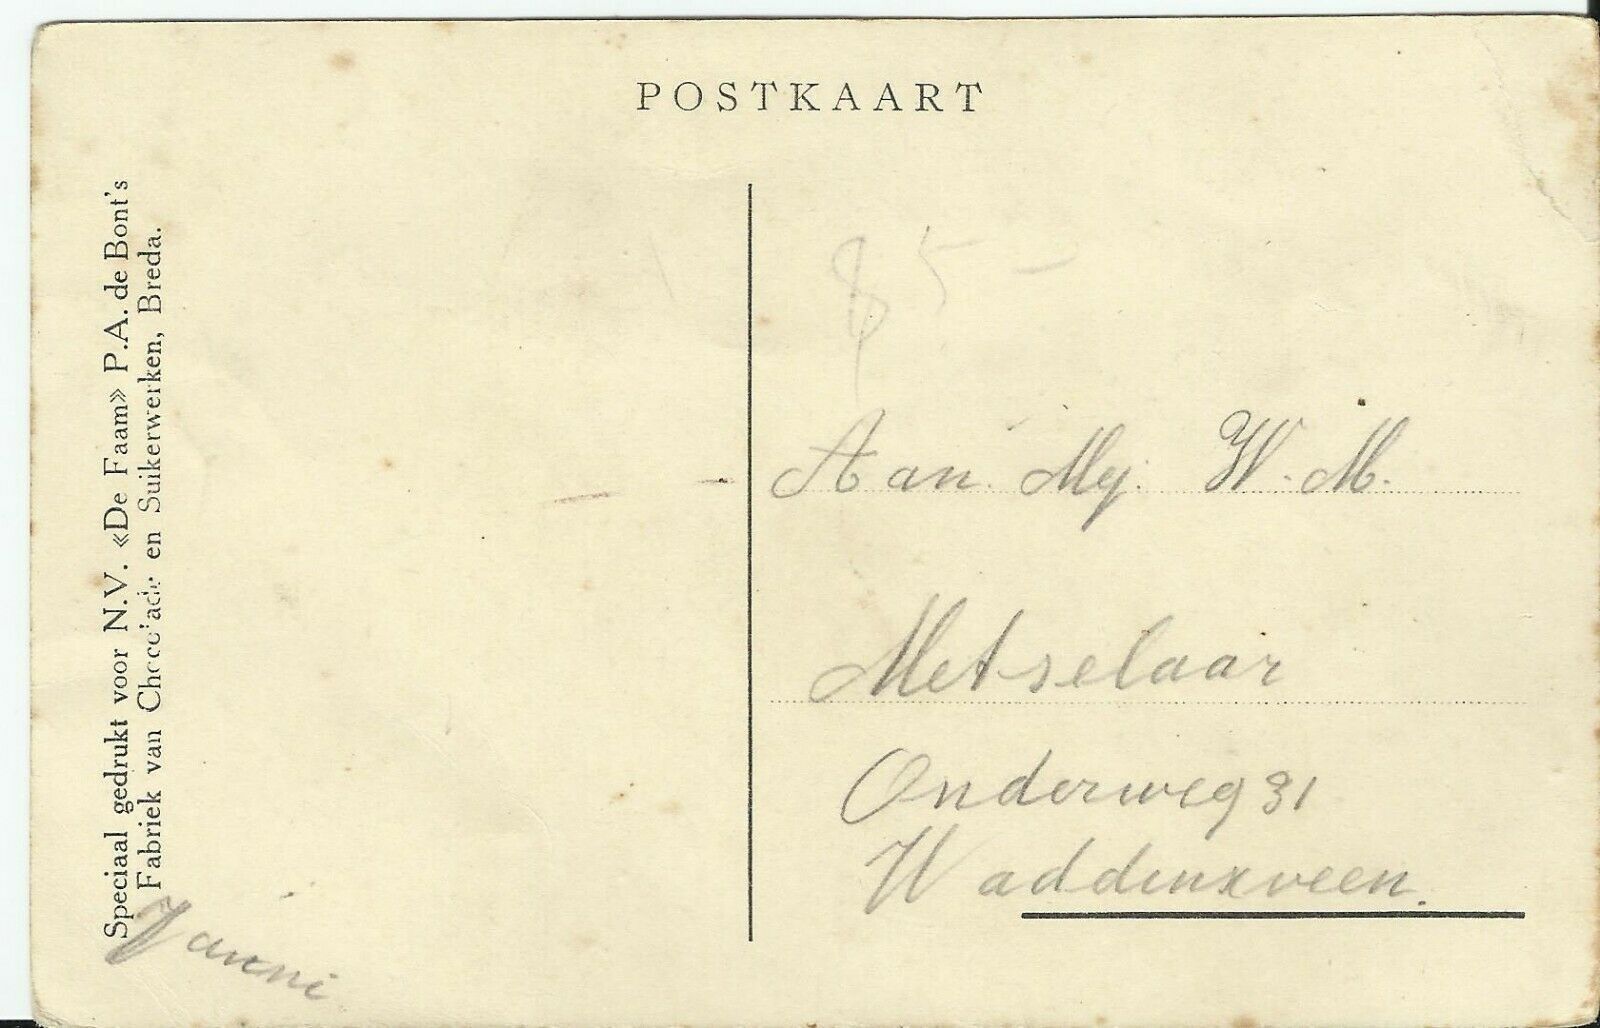 POSTKAART
Speciaal gedrukt voor N.V. «De Faam» P.A. de Bont's
Fabriek van Chocolade en Suikerwerken, Breda.
85-
Aan Mej. W. M.
Metselaar
Onderweg 31
Waddinxveen.
Janni